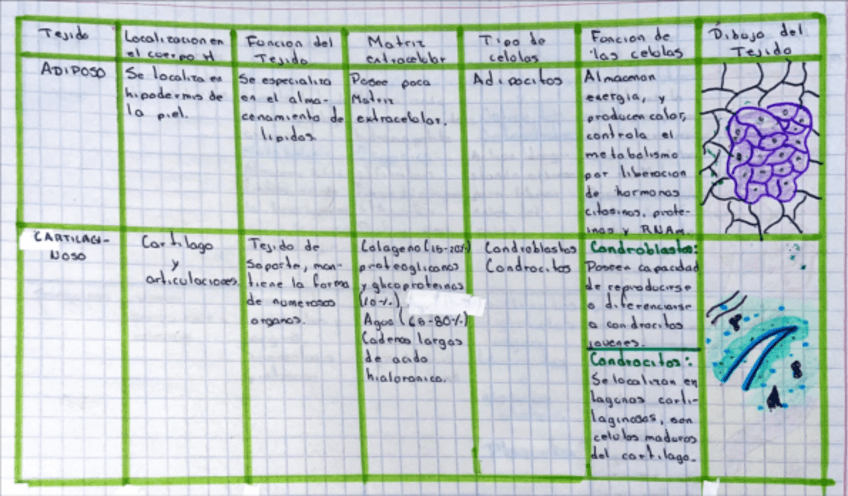 Tejido
Localizacion en
el cuerpo H
Funcion del
Tejido
Matriz
extracelular
Tipo de
celulas
Funcion de
las celulas
Dibujo del
Tejido
ADIPOSO
Se localiza en
hipodermis de
la piel.
Se especializa
en el alma-
cenamiento de
lipidos.
Posee poca
Matriz
extracelular.
Adipocitos
Almacenan
energia, y
producen calor,
controla el
metabolismo
por liberacion
de hormonas
citosinas, prote-
inas y RNAm.
CARTILAGI-
NOSO
Cartilago
y
articulaciones
Tejido de
Soporte, man-
tiene la forma
de numerosos
organos.
Colageno (15-20%)
proteoglicanos
y glicoproteinas
(10%)
Agua (60-80%)
Cadenas largas
de acido
hialoronico.
Condroblastos
Condrocitos
Condroblastos:
Poseen capacidad
de reproducirse
o diferenciarse
a condrocitos
jovenes.
Condrocitos:
Se localizan en
lagunas carti-
laginosas, son
celulas maduras
del cartilago.